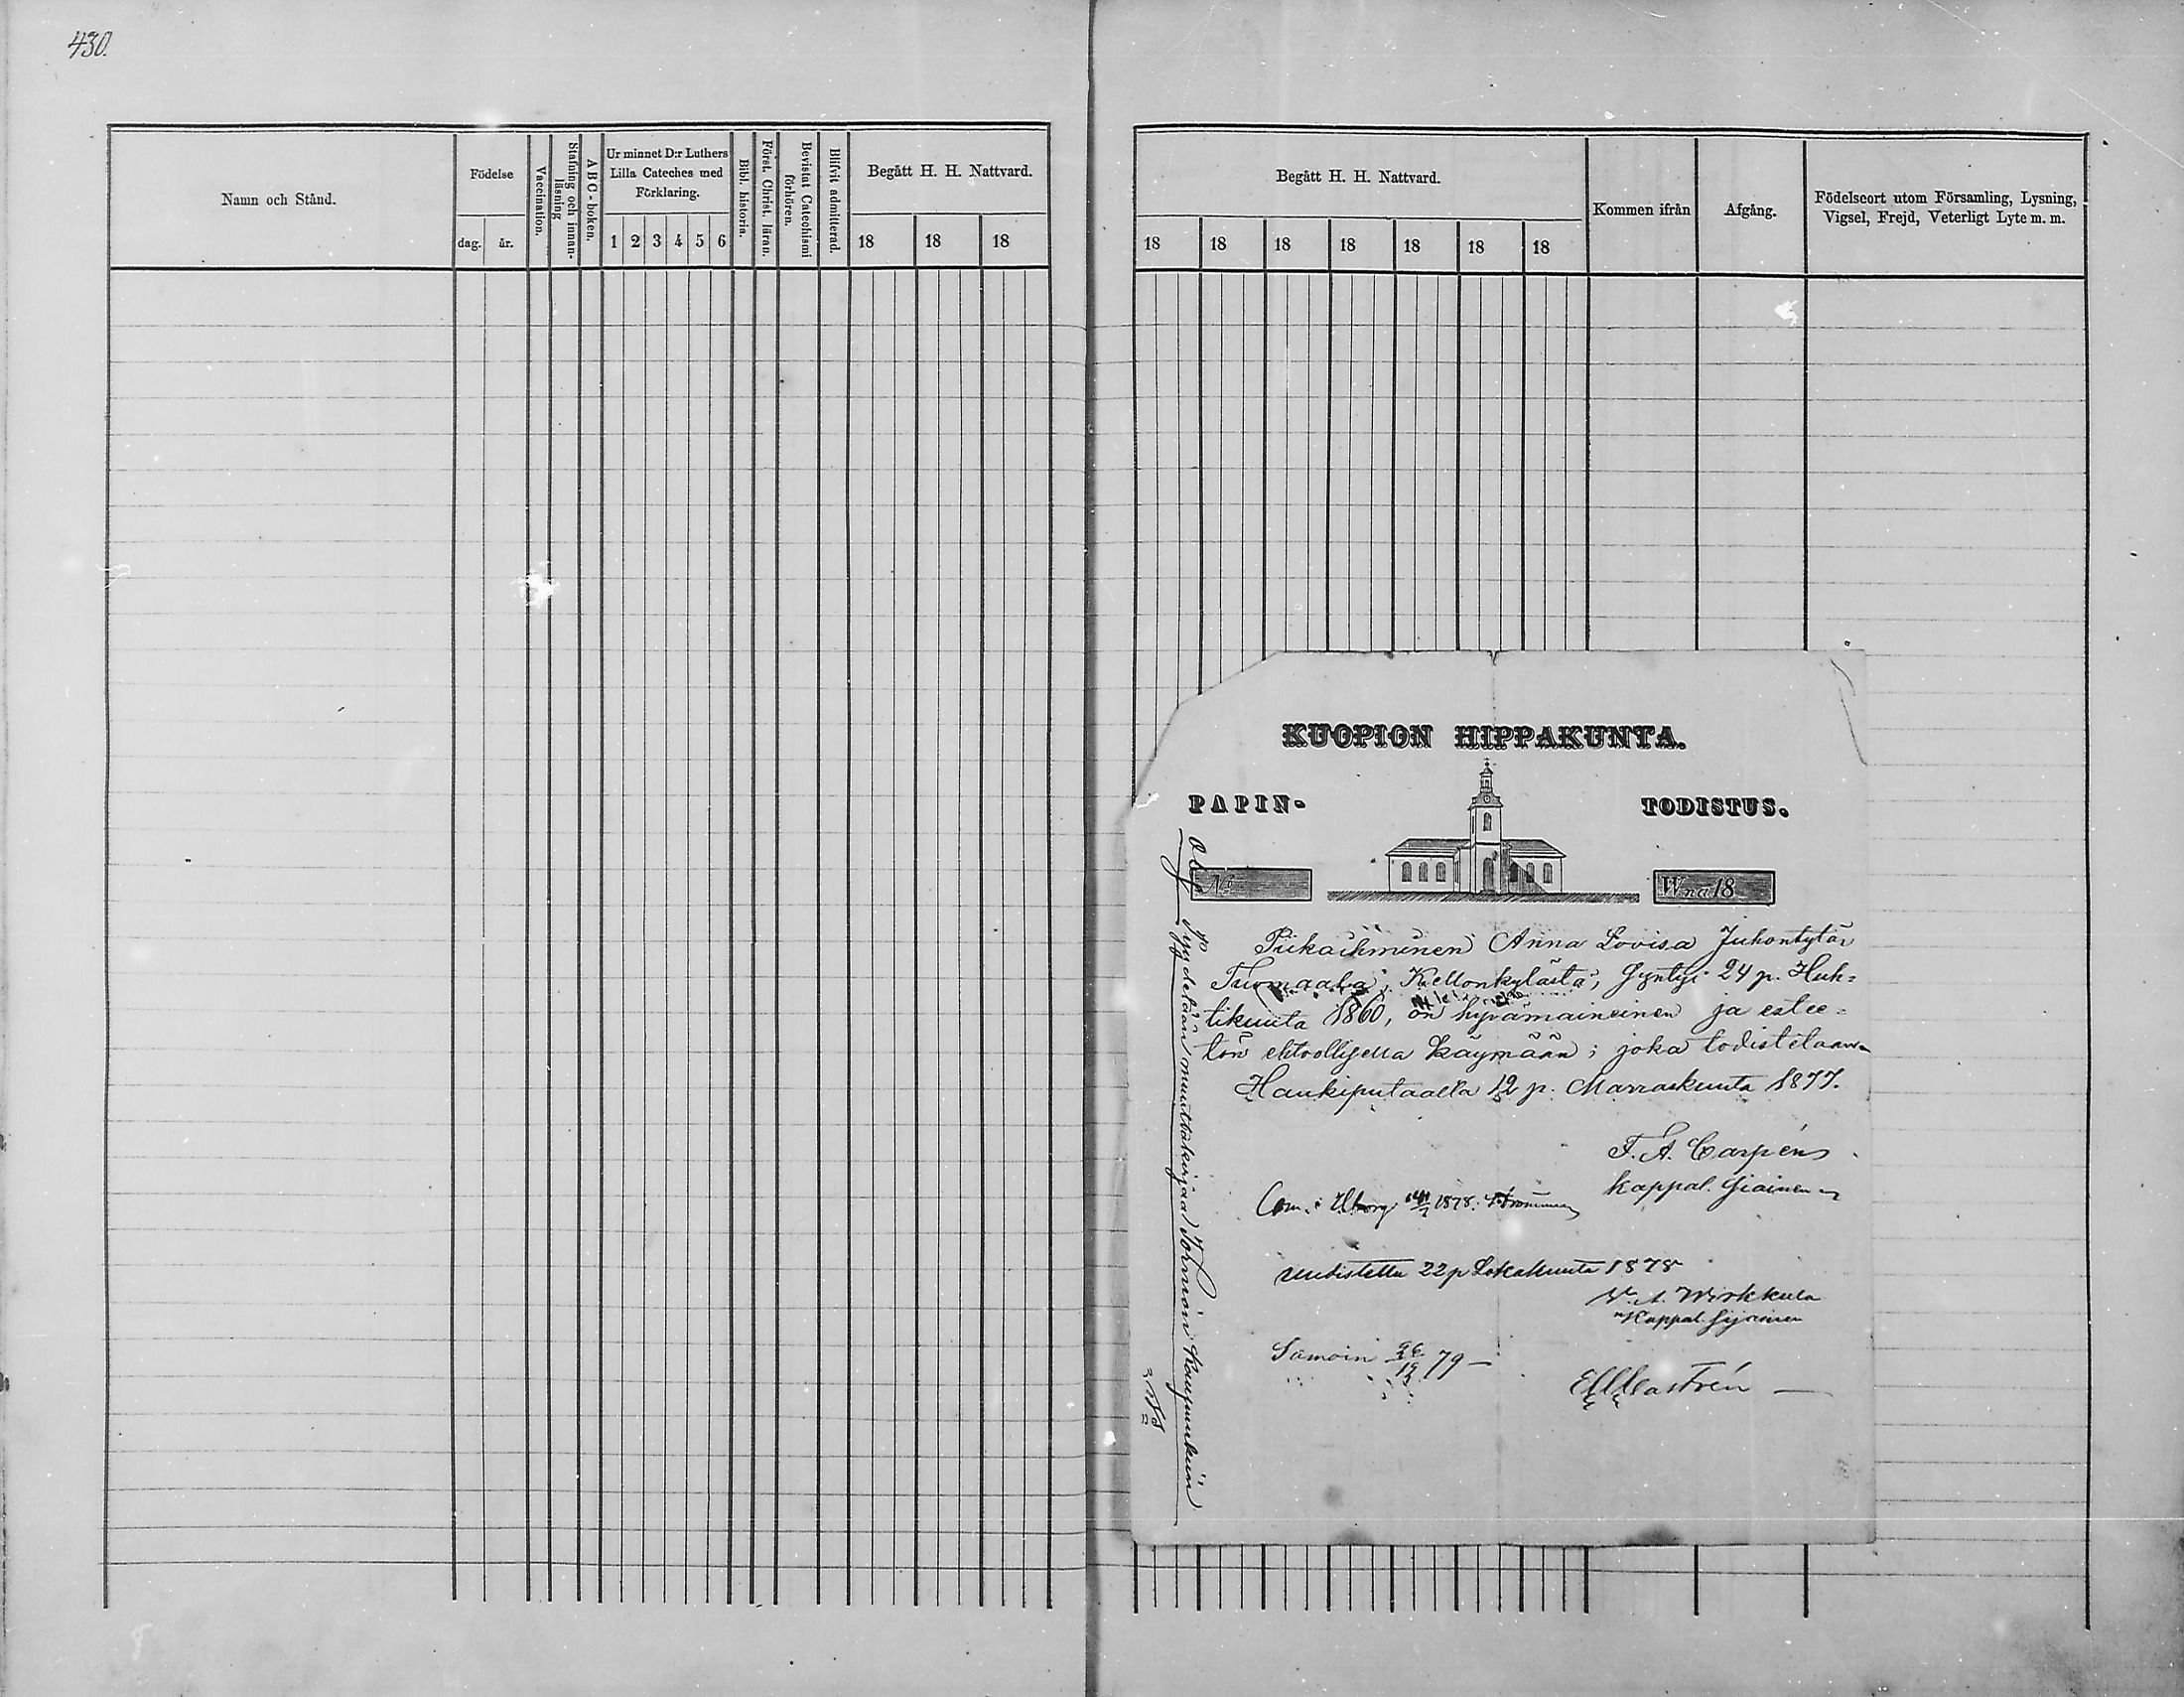 430.
Namn och Stånd.
Födelse
dag.
år.
Vaccination.
Stafning och innan-
läsning
A B C - boken.
Ur minnet D:r Luthers
Lilla Cateches med
Förklaring.
1 2 3 4 5 6
Bibl. historia.
Först. Christ. läran.
Bevistat Catechismi
förhören.
Blifvit admitterad.
Begått H. H. Nattvard.
18 18 18
Begått H. H. Nattvard.
18 18 18 18 18 18 18
Kommen ifrån
Afgång.
Födelseort utom Församling, Lysning,
Vigsel, Frejd, Veterligt Lyte m. m.
KUOPION HIPPAKUNTA.
PAPIN- TODISTUS.
No
Wna 18
Piikaihminen Anna Lovisa Juhontytär
Tuomaala, Kellonkylästä, syntyi 24 p. Huh=
tikuuta 1860, on hyvämaineinen ja estee=
tön ehtoollisella käymään; joka todistetaan
Haukiputaalla 12 p. Marraskuuta 1877.
F. A. Carpén
Kappal. siainen
Com. i Uborg 1878.
Uudistettu 22 p Lokakuuta 1878
Wirkkula
Kappal.
Samoin 79 —
Castrén —
pyydetään muuttokirjaa Tornion kaupunkiin